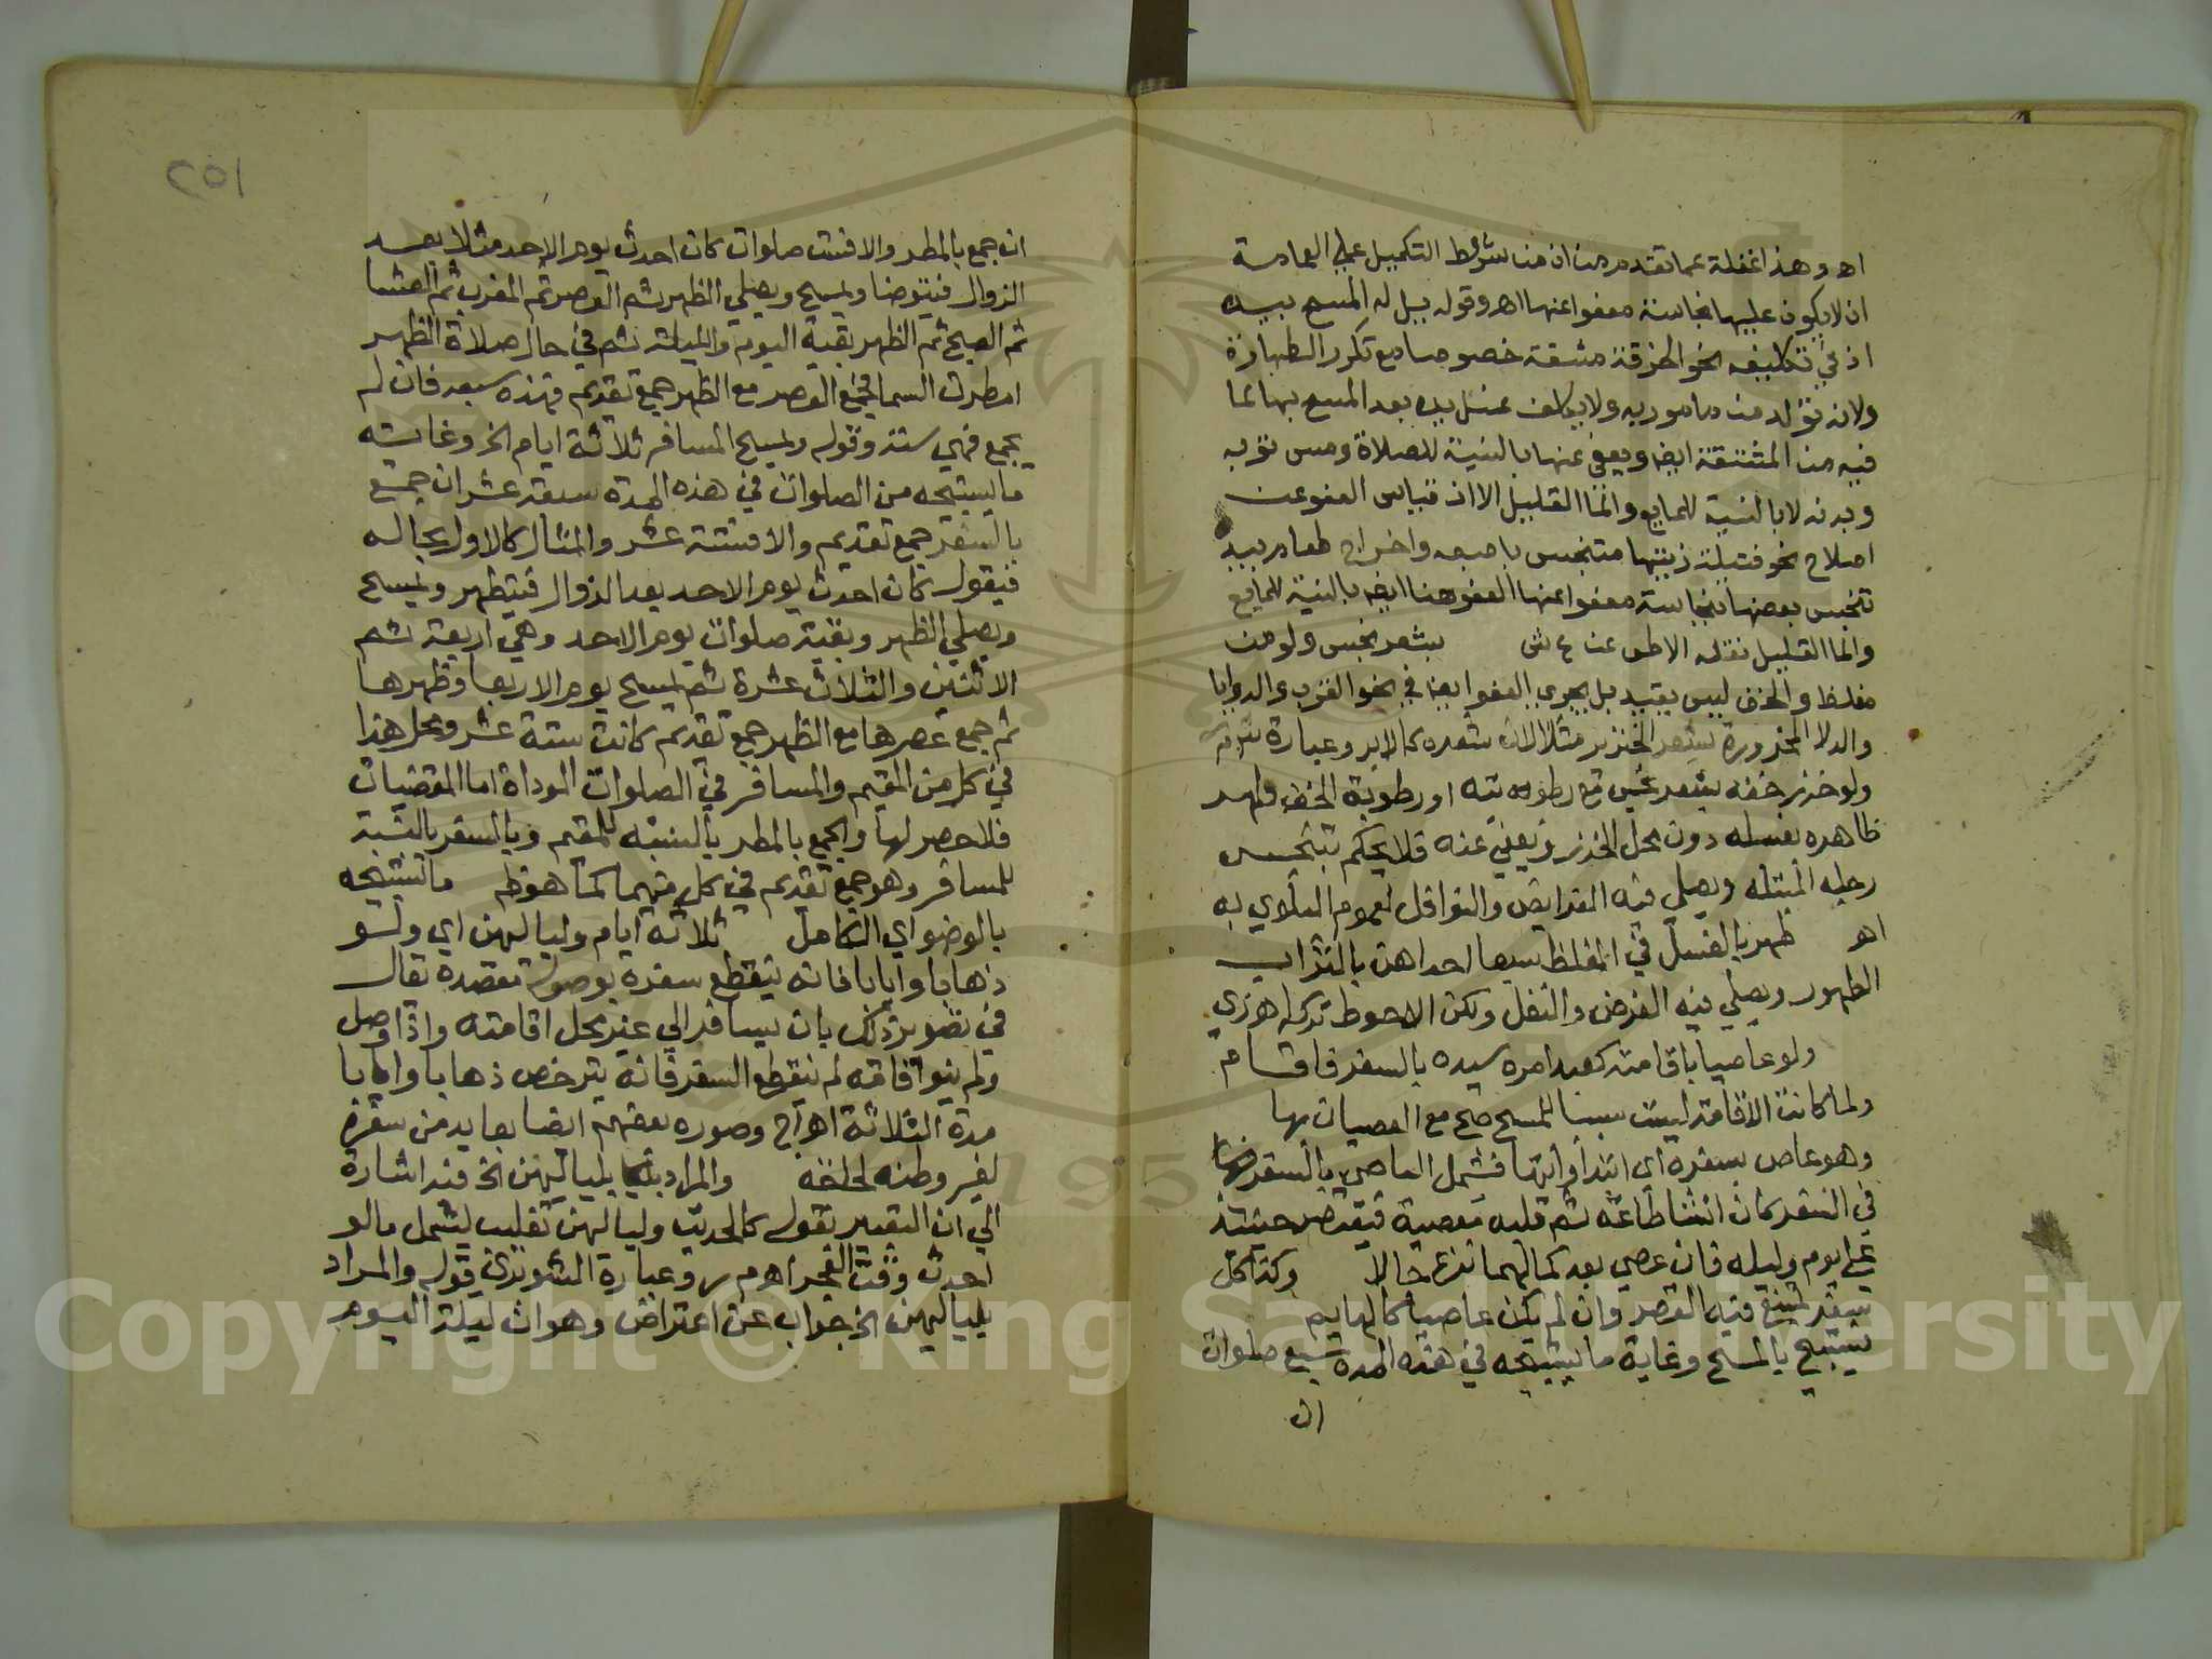 اه وهذا غفلة عما تقدم من ان من شروط التكميل على العمامة
ان لا يكون عليها نجاسة معفوا عنها اه وقوله بل له المسح بيده
اذ في تكليفه نحو الخرقة مشقة خصوصا مع تكرر الطهارة
ولانه تولد من مامور به ولا يكلف غسل يده بعد المسح بها لما
فيه من المشقة ايضا ويعفى عنها بالنسبة للصلاة ومس ثوبه
وبدنه لا بالنسبة للمايع والما القليل الا ان قياس العفو عن
اصلاح نحو فتيلة زيتها متنجس باصبعه واخراج طعام بيد
تنجس بعضها بنجاسة معفوا عنها العفو هنا ايضا بالنسبة للمايع
والما القليل نقله الاط عن ع ش بشعر نجس ولو من
مغلظ والخف ليس بقيد بل يجري العفو ايضا في نحو القرب والروايا
والدلا المخروزة بشعر الخنزير مثلا لان شعره كالابر وعبارة شرح م ر
ولو خرز خفه بشعر نجس مع رطوبته او رطوبة الخف طهر
ظاهره بغسله دون محل الخرز ويعفى عنه فلا يحكم بتنجس
رجله المبتلة ويصلي فيه الفرايض والنوافل لعموم البلوى به
اه طهر بالغسل في المغلظ سبعا احداهن بالتراب
الطهور ويصلي فيه الفرض والنفل ولكن الاحوط تركه اه زي
ولو عاصيا باقامته كعبد امره سيده بالسفر فاقام
ولما كانت الاقامة ليست سببا للمسح صح مع العصيان بها
وهو عاص بسفره اي ابتدا وانتها فشمل العاصي بالسفر
في السفر كان انشا طاعة ثم قلبه معصية فيقتصر حينئذ
على يوم وليله فان عصى بعد كمالهما نزع حالا وكذا كل
سفر يمتنع فيه القصر وان لم يكن عاصيا كالهايم
يستبيح بالمسح وغاية ما يستبيحه في هذه المدة سبع صلوات
ان
٢٥١
ان جمع بالمطر والا فست صلوات كان احدث يوم الاحد مثلا بعد
الزوال فيتوضا ويمسح ويصلي الظهر ثم العصر ثم المغرب ثم العشا
ثم الصبح ثم الظهر بقية اليوم والليلة ثم في حال صلاة الظهر
امطرت السما فجمع العصر مع الظهر جمع تقديم فهذه سبعه فان لم
يجمع فهي ستة وقوله ويمسح المسافر ثلاثة ايام الخ وغاية
ما يستبيحه من الصلوات في هذه المدة سبعة عشر ان جمع
بالسفر جمع تقديم والا فستة عشر والمثال كالاول بحاله
فيقول كان احدث يوم الاحد بعد الزوال فيتطهر ويمسح
ويصلي الظهر وبقية صلوات يوم الاحد وهي اربعة ثم
الاثنين والثلاث عشرة ثم يمسح يوم الاربعا وظهرها
ثم جمع عصرها مع الظهر جمع تقديم كانت ستة عشر ومحل هذا
في كل من المقيم والمسافر في الصلوات الموداة اما المقضيات
فلا حصر لها والجمع بالمطر بالنسبة للمقيم وبالسفر بالنسبة
للمسافر وهو جمع تقديم في كل منهما كما هو ظ ما يستبيحه
بالوضو اي الكامل ثلاثة ايام ولياليهن اي ولو
ذهابا وايابا فانه ينقطع سفره بوصوله مقصده تقال
في تصوير ذلك بان يسافر الى غير محل اقامته واذا وصل
ولم ينو اقامة لم ينقطع السفر فانه يترخص ذهابا وايابا
مدة الثلاثة اه اج وصوره بعضهم ايضا بعايد من سفره
لغير وطنه لحاجة والمراد بلياليهن الخ فيه اشارة
الى ان التعبير بقوله كالحديث ولياليهن تغليب ليشمل ما لو
احدث وقت الفجر اه م ر وعبارة الشوبري قوله والمراد
بلياليهن الخ جواب عن اعتراض وهو ان ليلة اليوم
Copyright © King Saud University